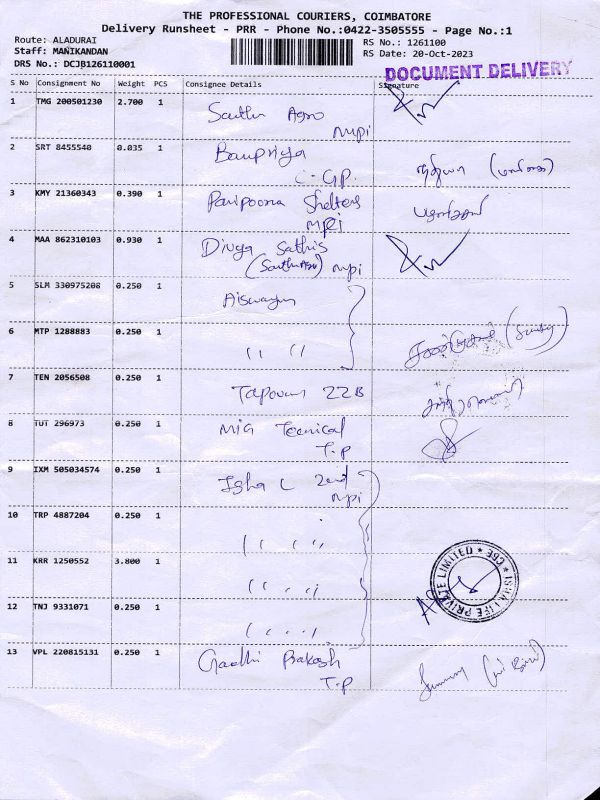 THE PROFESSIONAL COURIERS, COIMBATORE
Delivery Runsheet - PRR - Phone No.:0422-3505555 - Page No.:1
Route: ALADURAI
Staff: MANIKANDAN
DRS No.: DCJB126110001
RS No.: 1261100
RS Date: 20-Oct-2023
DOCUMENT DELIVERY
S No Consignment No Weight PCS Consignee Details Signature
1 TMG 200501230 2.700 1 Santhi Agro
MPi
2 SRT 8455540 0.035 1 Banupriya
C-GP.
3 KMY 21360343 0.390 1 Paripoorna Shelters
MPi
4 MAA 862310103 0.930 1 Divya Sathis
(Santhi Agro) MPi
5 SLM 330975208 0.250 1
6 MTP 1288883 0.250 1 " "
7 TEN 2056508 0.250 1 Tapovan 22B
8 TUT 296973 0.250 1 Tecnical
T.P
9 IXM 505034574 0.250 1 Isha L 2nd
MPi
10 TRP 4887204 0.250 1
11 KRR 1250552 3.800 1
12 TNJ 9331071 0.250 1
ISHA LIFE PRIVATE LIMITED * CBE *
13 VPL 220815131 0.250 1 Gandhi Prakash
T.P